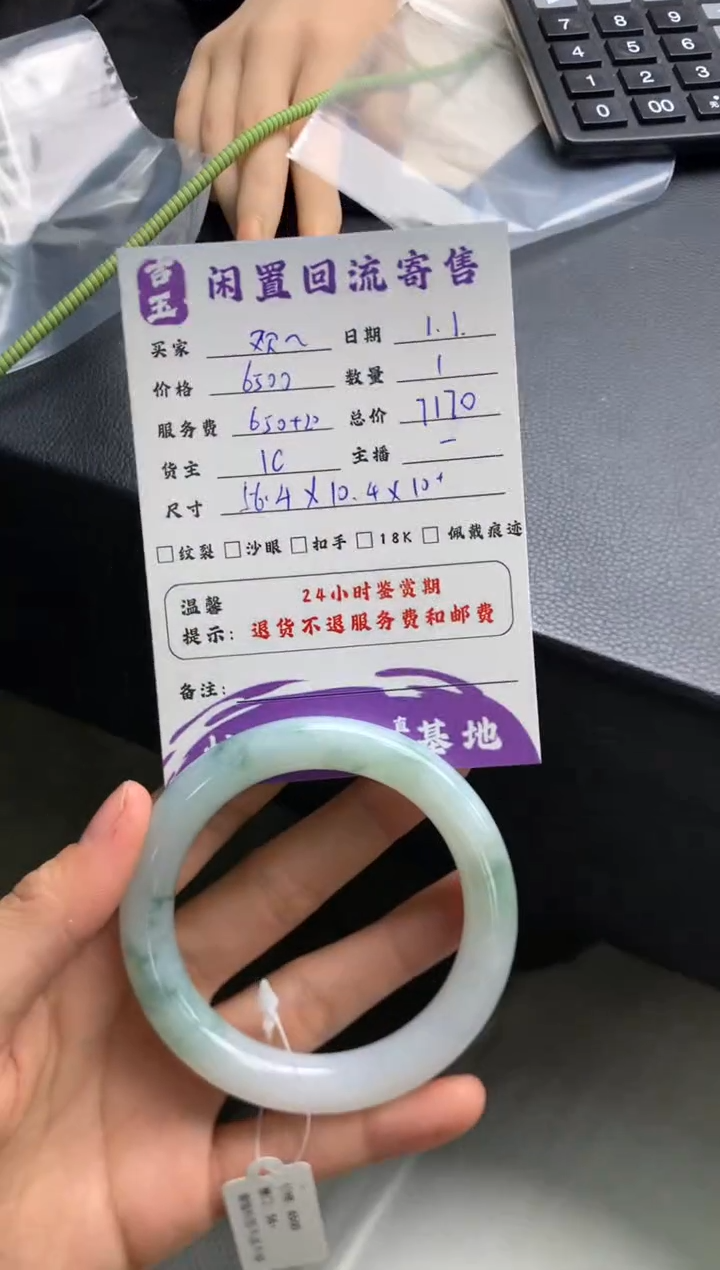 7 8 9
4 5 6
1 2 3
0 00
吉玉 闲置回流寄售
买家 欢~ 日期 1.1.
价格 6500 数量 1
服务费 650+20 总价 7170
货主 1C 主播 —
尺寸 56.4 X 10.4 X 10+
□纹裂 □沙眼 □扣手 □18K □佩戴痕迹
温馨 24小时鉴赏期
提示: 退货不退服务费和邮费
备注:
基地